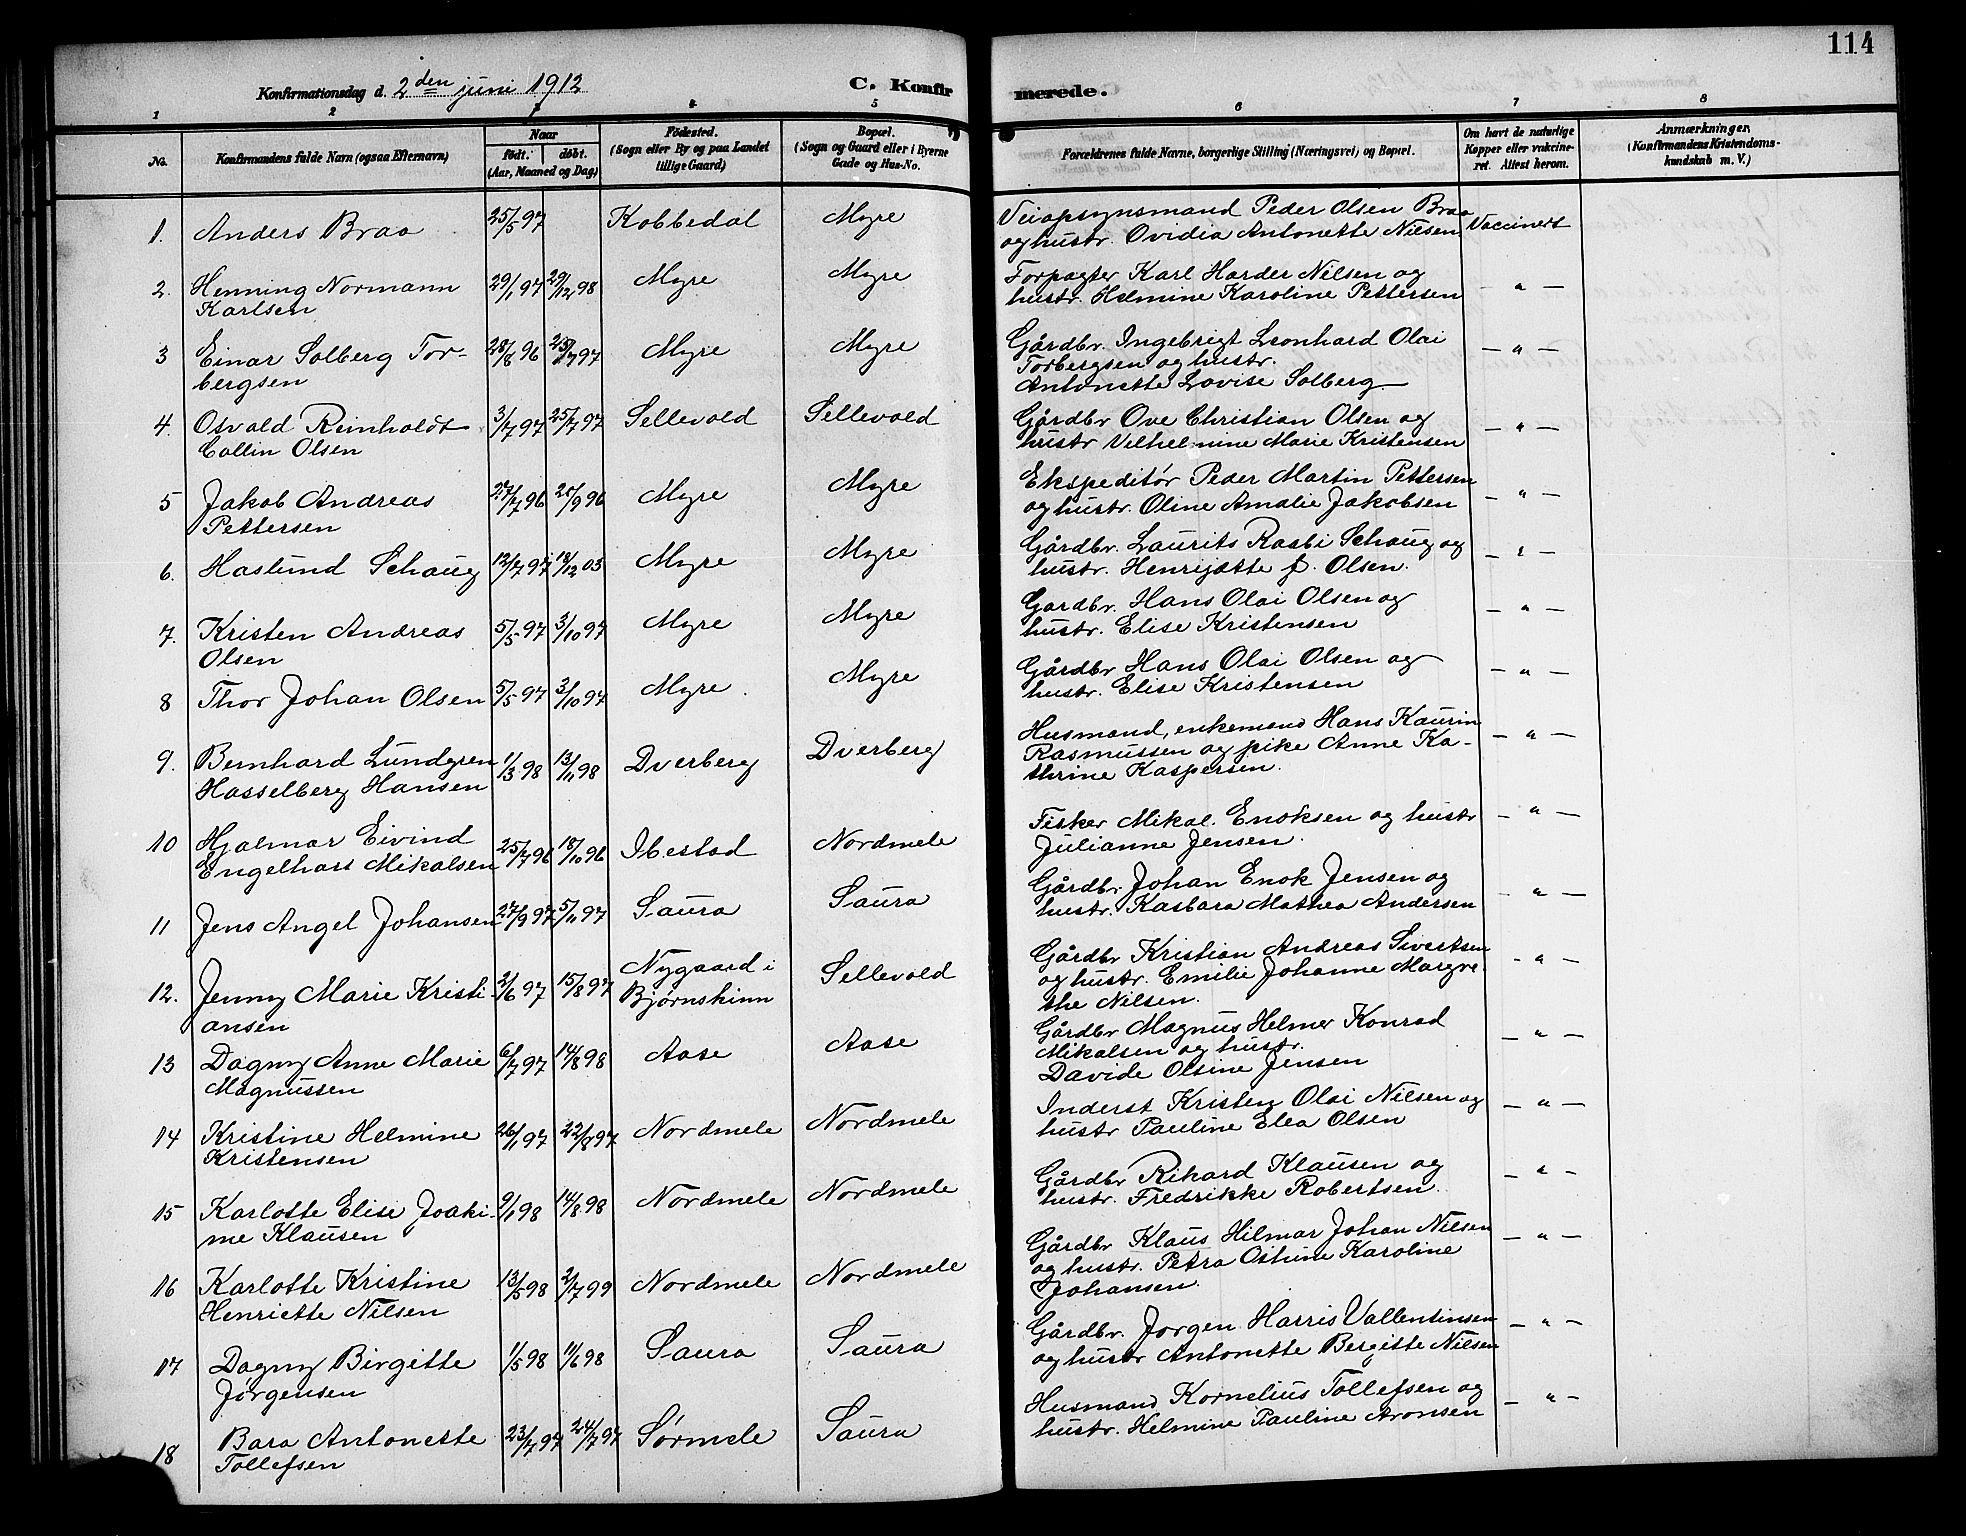 114
Konfirmationsdag d. 2den juni 1912
C. Konfirmerede.
1 2 3 4 5 6 7 8
No.
Konfirmandens fulde Navn (ogsaa Efternavn)
Naar
født. døbt.
(Aar, Maaned og Dag)
Fødested.
(Sogn eller By og paa Landet
tillige Gaard)
Bopæl.
(Sogn og Gaard eller i Byerne
Gade og Hus-No.
Forældrenes fulde Navne, borgerlige Stilling (Næringsvei) og Bopæl.
Om havt de naturlige
Kopper eller vaccine-
ret. Attest herom.
Anmærkninger,
(Konfirmandens Kristendoms-
kundskab m. V.)
1. Anders Braa 25/5 97 Kobbedal Myre Veiopsynsmand Peder Olsen Braa Vaccinert
og hustr. Ovidia Antonette Nilsen
2. Henning Normann 29/1 97 29/12 98 Myre Myre Forpagter Karl Harder Nilsen og — " —
Karlsen hustr. Helmine Karoline Pettersen
3 Einar Solberg Tor- 28/8 96 Myre Myre Gårdbr. Ingebrigt Leonhard Olai — " —
bergsen Torbergsen og hustr.
Antonette Lovise Solberg
4. Osvald Reinholdt 3/7 97 25/7 97 Sellevold Sellevold Gårdbr Ove Christian Olsen og — " —
Collin Olsen hustr Vilhelmine Marie Kristensen
5 Jakob Andreas 27/7 96 Myre Myre Ekspeditør Peder Martin Pettersen — " —
Pettersen og hustr. Oline Amalie Jakobsen
6. Haslund Schaug 18/12 03 Myre Myre Gårdbr. Laurits Rasbi Schaug og — " —
hustr. Henrijætte f. Olsen.
7. Kristen Andreas 5/5 97 3/10 97 Myre Myre Gardbr. Hans Olai Olsen og — " —
Olsen hustr. Elise Kristensen
8 Thor Johan Olsen 5/5 97 3/10 97 Myre. Myre Gårdbr Hans Olai Olsen og — " —
hustr. Elise Kristensen
9. Bernhard Lundgren 1/3 98 13/11 98 Dverberg Dverberg Husmand, enkemand Hans Kaurin — " —
Hasselberg Hansen Rasmussen og pike Anne Ka-
thrine Kaspersen.
10 Hjalmar Eivind 25/7 96 18/10 96 Ibestad Nordmele Fisker Mikal. Enoksen og hustr — " —
Engelhart Mikalsen Julianne Jensen.
11 Jens Angel Johansen 27/9 97 5/11 97 Saura Saura Gårdbr Johan Enok Jensen og — " —
hustr. Kasbara Mathea Andersen
12. Jenny Marie Kristi- 2/6 97 15/8 97 Nygaard i Sellevold Gårdbr Kristian Andreas Sivertsen - " —
ansen Bjørnskinn og hustr. Emilie Johanne Margre-
the Nilsen.
13 Dagny Anne Marie 6/7 97 14/8 98 Aase Aase Gårdbr Magnus Helmer Konrad — " —
Magnussen Mikalsen og hustr.
Davide Olsine Jensen
14 Kristine Helmine 26/1 97 22/8 97 Nordmele Nordmele Inderst Kristen Olai Nilsen og — " —
Kristensen hustr Pauline Elea Olsen
15 Karlotte Elise Joaki- 9/1 98 14/8 98 Nordmele Nordmele Gårdbr Rikard Klausen og — " -
me Klausen hustr. Fredrikke Robertsen.
16 Karlotte Kristine 13/5 98 2/7 99 Nordmele Nordmele Gårdbr Klaus Hilmar Johan Nilsen — " —
Henriette Nilsen og hustr. Petra Karoline
Johansen.
17 Dagny Birgitte 1/5 98 11/6 98 Saura Saura Gårdbr. Jørgen Harris Vallentinsen — " —
Jørgensen og hustr Antonette Bergitte Nilsen
18 Bara Antonette 23/7 97 24/7 97 Sørmele Saura Husmand Kornelius Tollefsen og — " —
Tollefsen hustr. Helmine Pauline Aronsen